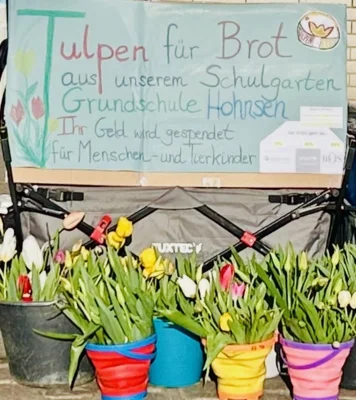 Tulpen für Brot
aus unserem Schulgarten
Grundschule Hohnsen
Ihr Geld wird gespendet
für Menschen- und Tierkinder
TUXTEC